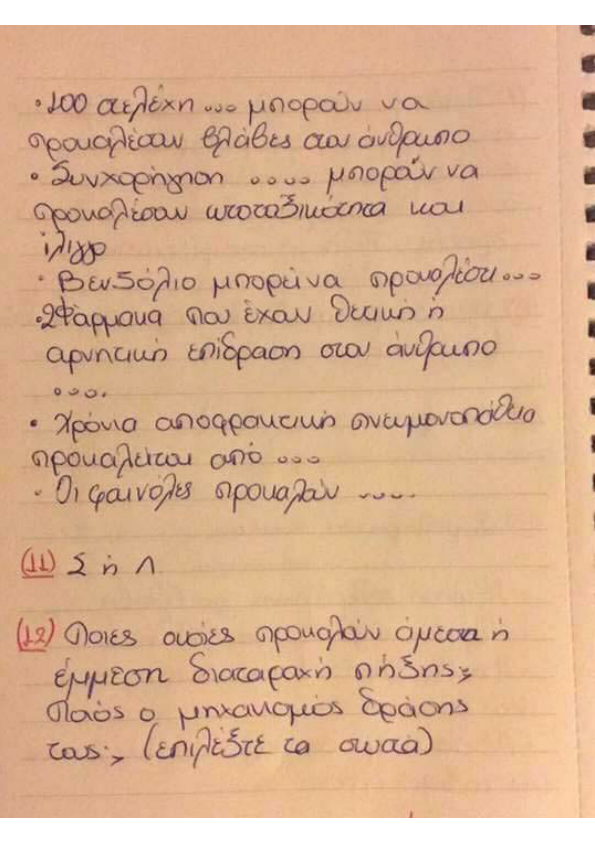 • 100 στελέχη ... μπορούν να
προκαλέσουν βλάβες στον άνθρωπο
• Συνχορήγηση .... μπορούν να
προκαλέσουν ωτοτοξικότητα και
ίλιγγο
• Βενζόλιο μπορεί να προκαλέσει...
• 2 Φάρμακα που έχουν θετική ή
αρνητική επίδραση στον άνθρωπο
....
• Χρόνια αποφρακτική πνευμονοπάθεια
προκαλείται από ...
• Οι φαινόλες προκαλούν ....
(11) Σ ή Λ
(12) Ποιες ουσίες προκαλούν άμεση ή
έμμεση διαταραχή πήξης;
Ποιός ο μηχανισμός δράσης
τους; (επιλέξτε τα σωστά)